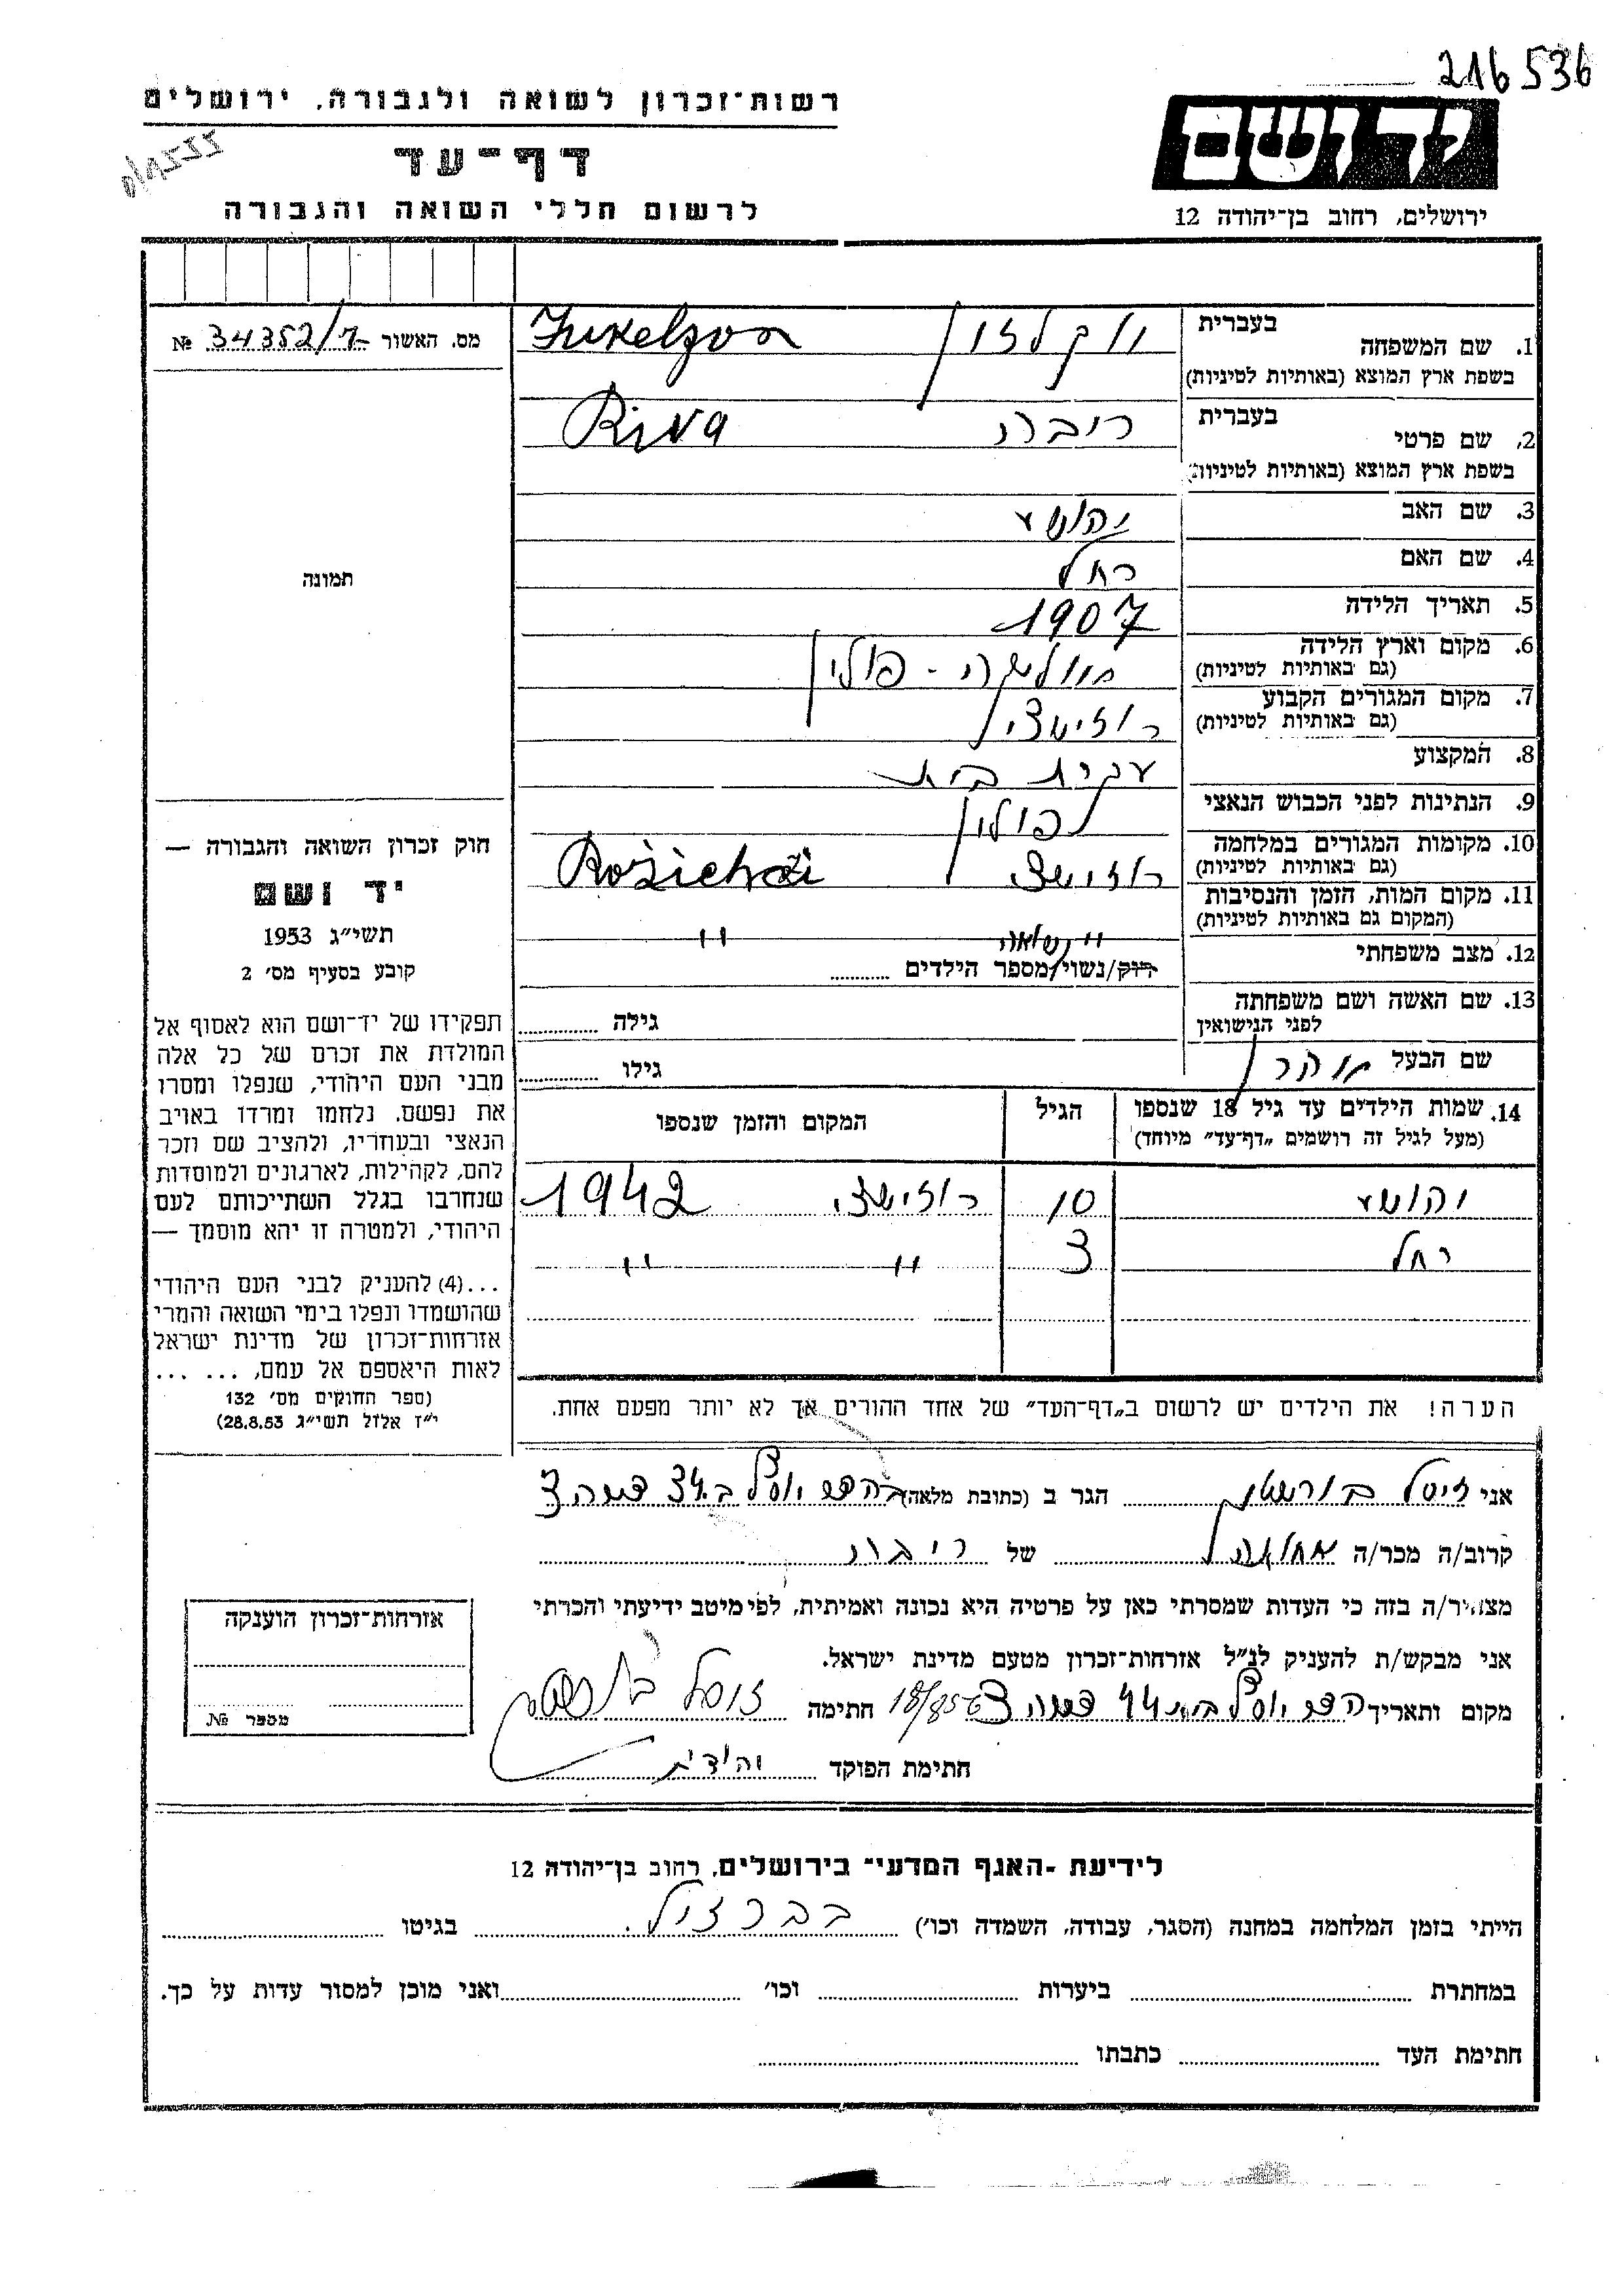 216536
רשות־זכרון לשואה ולגבורה, ירושלים
דף־עד
לרשום חללי השואה והגבורה
יד ושם
ירושלים, רחוב בן־יהודה 12
מס. האשור 34352/7 №
תמונה
חוק זכרון השואה והגבורה —
יד ושם
תשי״ג 1953
קובע בסעיף מס׳ 2
תפקידו של יד־ושם הוא לאסוף אל
המולדת את זכרם של כל אלה
מבני העם היהודי, שנפלו ומסרו
את נפשם, נלחמו ומרדו באויב
הנאצי ובעוזריו, ולהציב שם וזכר
להם, לקהילות, לארגונים ולמוסדות
שנחרבו בגלל השתייכותם לעם
היהודי, ולמטרה זו יהא מוסמך —
...(4) להעניק לבני העם היהודי
שהושמדו ונפלו בימי השואה והמרי
אזרחות־זכרון של מדינת ישראל
לאות היאספם אל עמם, ... ...
(ספר החוקים מס׳ 132
י״ז אלול תשי״ג 28.8.53)
1. שם המשפחה בעברית
בשפת ארץ המוצא (באותיות לטיניות)
Zukelzon
2. שם פרטי בעברית ריבה
בשפת ארץ המוצא (באותיות לטיניות)
Riva
3. שם האב יהושע
4. שם האם רחל
5. תאריך הלידה 1907
6. מקום וארץ הלידה
(גם באותיות לטיניות) פולין
7. מקום המגורים הקבוע
(גם באותיות לטיניות) רוזישצי
8. המקצוע עקרת בית
9. הנתינות לפני הכבוש הנאצי פולין
10. מקומות המגורים במלחמה
(גם באותיות לטיניות) רוזישצי
11. מקום המות, הזמן והנסיבות
(המקום גם באותיות לטיניות) " "
12. מצב משפחתי נשואה
רוק/נשוי/מספר הילדים
13. שם האשה ושם משפחתה
לפני הנישואין
גילה
שם הבעל
גילו
14. שמות הילדים עד גיל 18 שנספו
(מעל לגיל זה רושמים „דף־עד״ מיוחד)
הגיל
המקום והזמן שנספו
יהושע 10 רוזישצי 1942
רחל 3 " "
הערה! את הילדים יש לרשום ב„דף־העד״ של אחד ההורים אך לא יותר מפעם אחת.
אני זיסל הגר ב (כתובת מלאה)
קרוב/ה מכר/ה של ריבה
מצהיר/ה בזה כי העדות שמסרתי כאן על פרטיה היא נכונה ואמיתית, לפי מיטב ידיעתי והכרתי
אני מבקש/ת להעניק לנ״ל אזרחות־זכרון מטעם מדינת ישראל.
מקום ותאריך חתימה זיסל
חתימת הפוקד יהודית
אזרחות־זכרון הוענקה
מספר №
לידיעת ־האגף המדעי־ בירושלים, רחוב בן־יהודה 12
הייתי בזמן המלחמה במחנה (הסגר, עבודה, השמדה וכו׳) בברזיל. בגיטו
במחתרת ביערות וכו׳ ואני מוכן למסור עדות על כך.
חתימת העד כתבתו